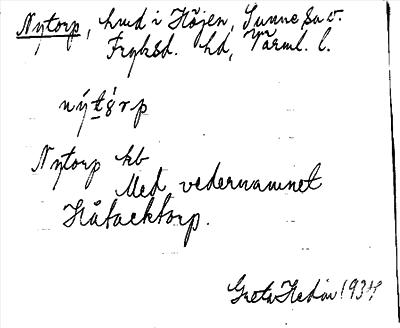 Nytorp, hmd i Höjen, Sunne sn o.
Fryksd. hd, Värml. l.
nýtórp
Nytorp kb
Med vedernamnet
Håtaektorp.
Greta Hedin 1934